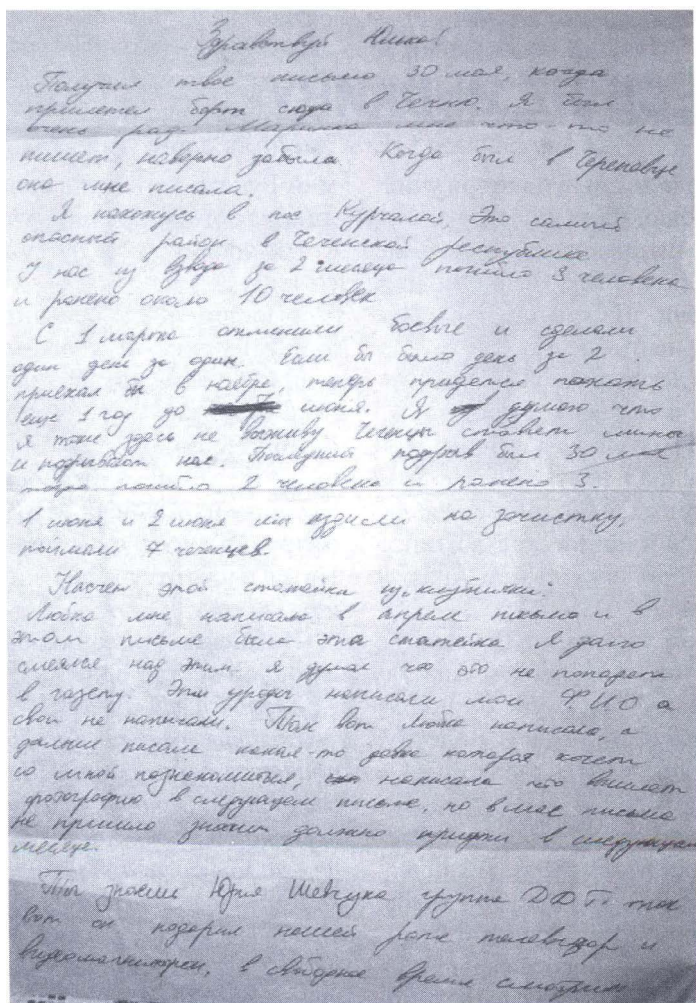 Здравствуй Юлька!
Получил твое письмо 30 мая, когда
прилетел борт сюда в Чечню. Я был
очень рад. Маринка мне что-то не
пишет, наверно забыла. Когда был в Череповце
она мне писала.
Я нахожусь в пос Курчалой, Это самый
опасный район в Чеченской республике
У нас из взвода за 2 месяца погибло 3 человека
и ранено около 10 человек
С 1 марта отменили боевые и сделали
один день за один. Если бы было день за 2
приехал бы в ноябре, теперь придется пахать
еще 1 год до июня. Я думаю что
я тоже здесь не выживу Чеченцы ставят мины
и подрывают нас. Последний подрыв был 30 мая
тогда погибло 2 человека и ранено 3.
1 июня и 2 июня мы ездили на зачистку,
поймали 7 чеченцев.
Насчет этой статейки из
Любка мне написала в апреле письмо и в
этом письме была эта статейка Я долго
смеялся над этим. я думал что это не попадет
в газету. Эти уроды написали мои ФИО а
свои не написали. Так вот Любка написала, а
дальше писала какая-то девка которая хочет
со мной познакомиться, написала что вышлет
фотографию в следующем письме, но в мае письма
не пришло значит должно прийти в следующем
месяце.
Ты знаешь Юрия Шевчука группа ДДТ так
вот он подарил нашей роте телевизор и
видеомагнитофон, в свободное время смотрим